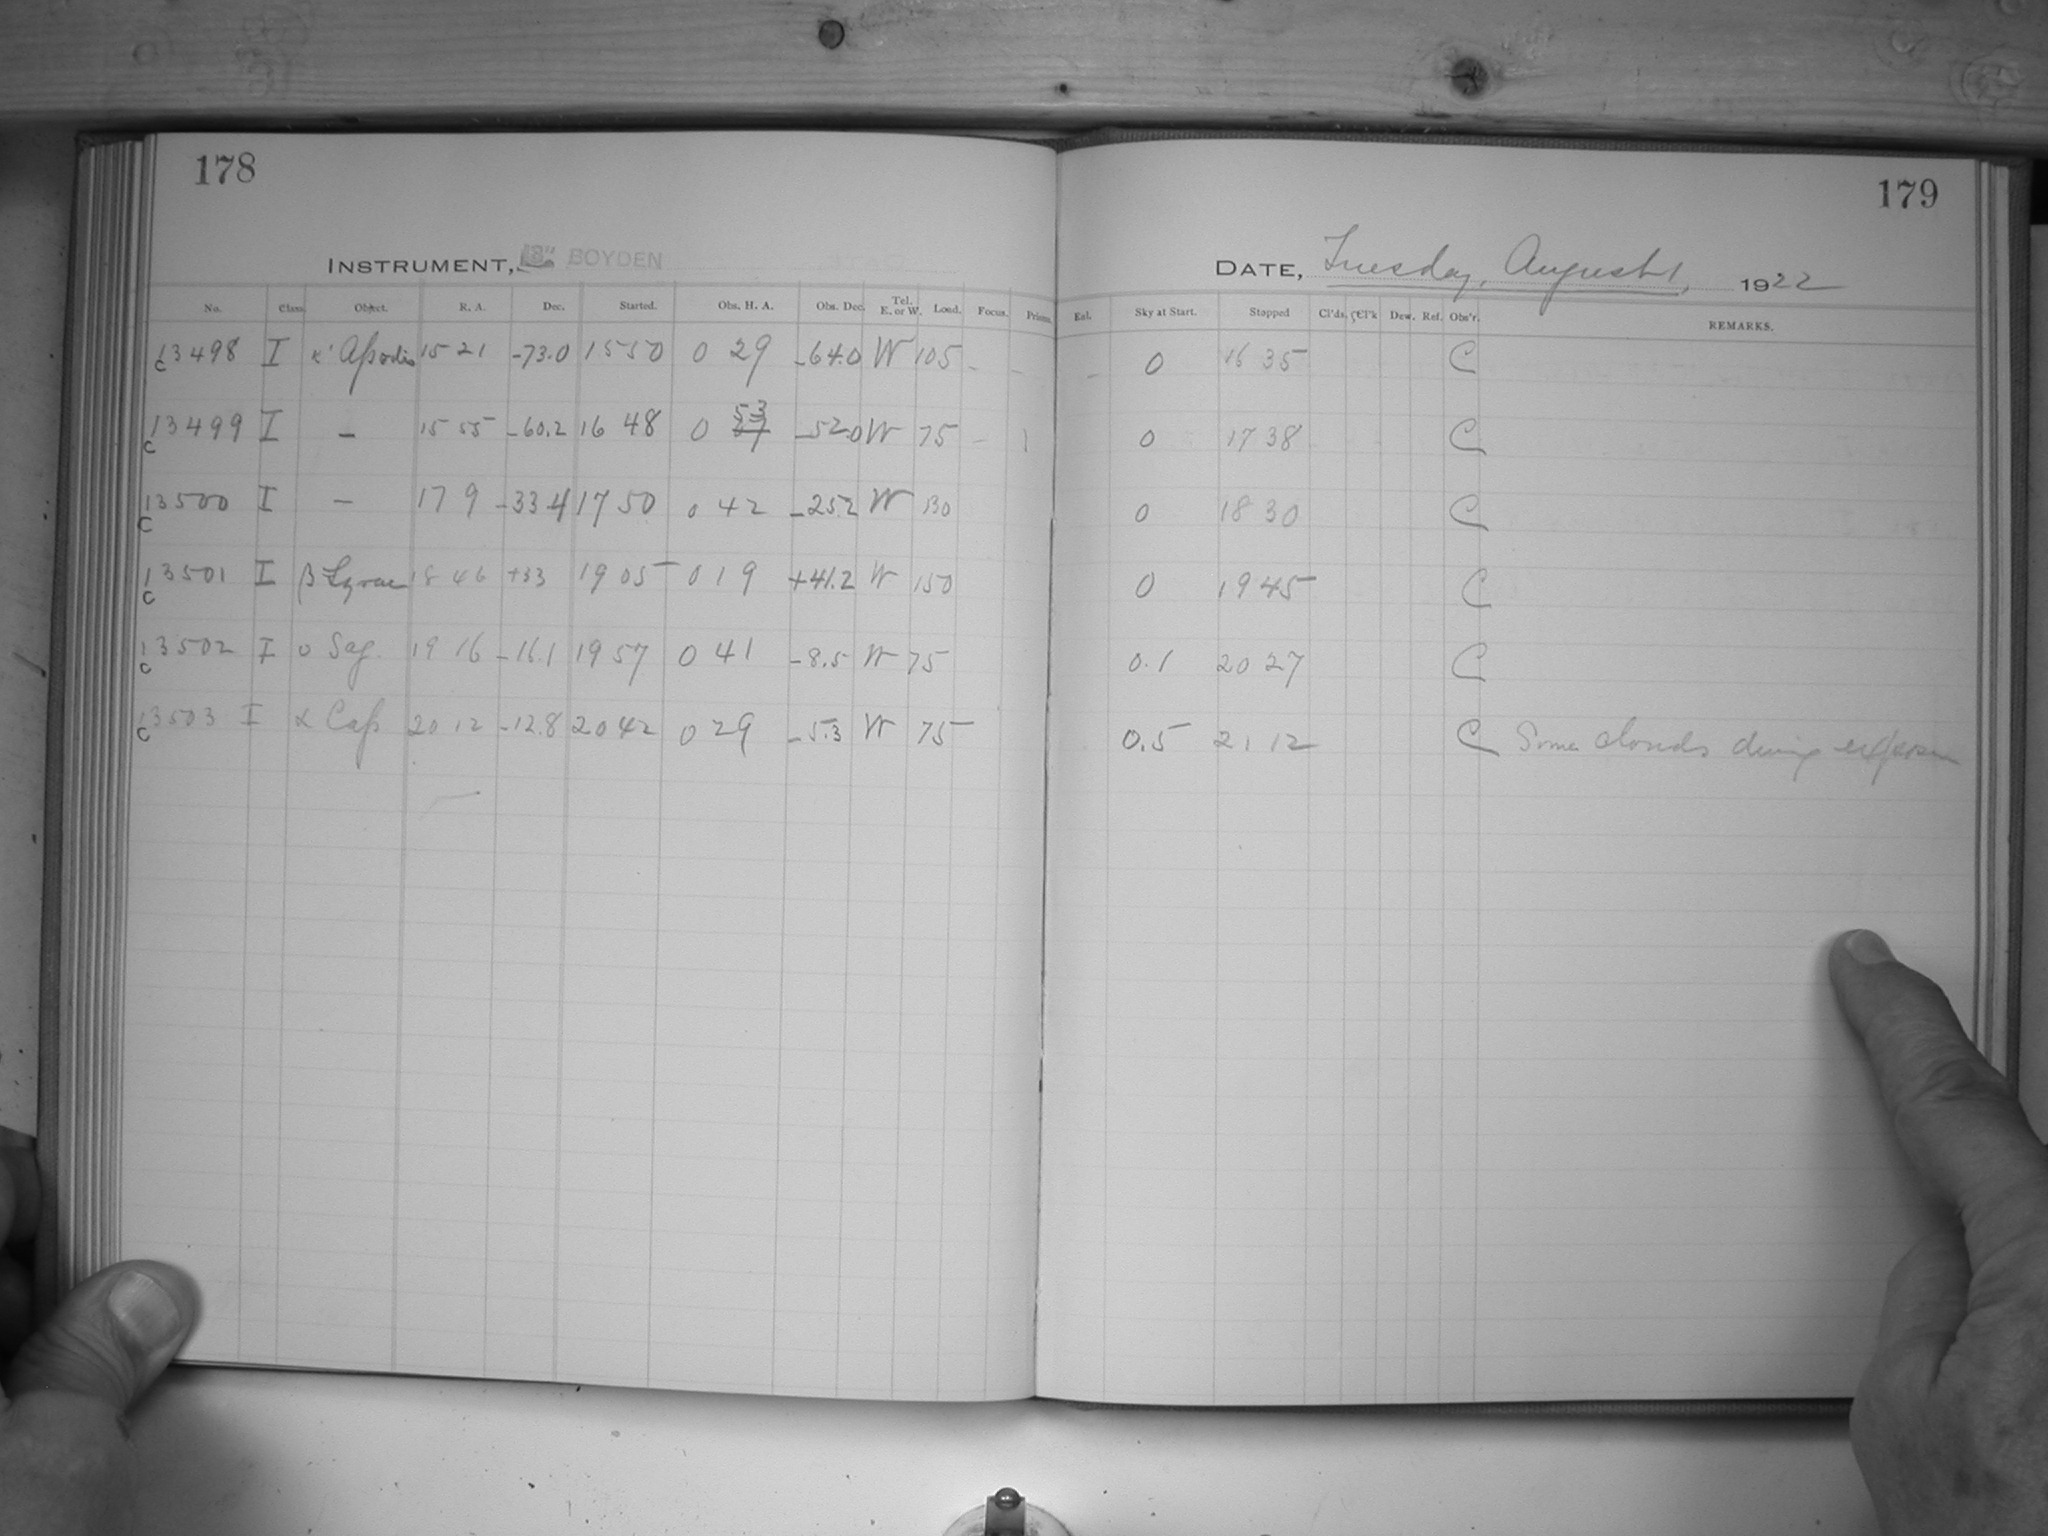 178
INSTRUMENT, BOYDEN
No. Class Object. R. A. Dec. Started. Obs. H. A. Obs. Dec. Tel. E. or W. Load. Focus. Prisms.
c13498 I κ' Apodis 15 21 -73.0 15 50 0 29 -64.0 W 105 - -
c13499 I - 15 55 -60.2 16 48 0 53 -52.0 W 75 -
c13500 I - 17 9 -33.4 17 50 0 42 -25.2 W 130
c13501 I β Lyrae 18 46 +33 19 05 0 19 +41.2 W 150
c13502 I υ Sag. 19 16 -16.1 19 57 0 41 -8.5 W 75
c13503 I α Cap 20 12 -12.8 20 42 0 29 -5.3 W 75
179
DATE, Tuesday, August 1, 1922
Enl. Sky at Start. Stopped Cl'ds. Cl'k Dew. Ref. Obs'r. REMARKS.
- 0 16 35 C
0 17 38 C
0 18 30 C
0 19 45 C
0.1 20 27 C
0.5 21 12 C Some clouds during exposure